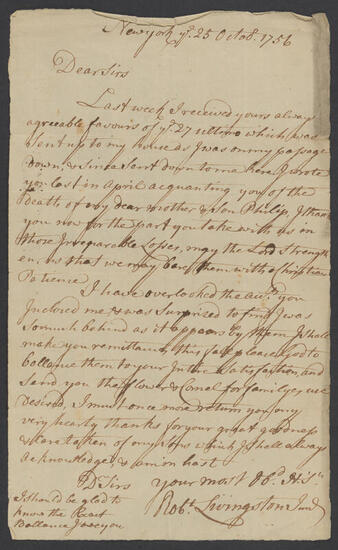 New york yͤ. 25 Octobʳ. 1756
Dear Sirs
Last week I received yours always
agreeable favours of yͤ 27 ultimo which was
sent up to my house as I was on my passage
down, & since sent down to me here, I wrote
you last in April acquanting you of the
Death of my dear mother & Son Philip, I thank
you now for the part you take with us in
those Irreparable Losses, may the Lord strength
en us that we may bear them with Christian
Patience
I have overlooked the you
Inclosed me & was Surprised to find I was
So much behind as it appears by them I shall
make you remittance this fall please god to
ballance them to your Intire Satisfaction, and
Send you the flower & Cornel for familys use
Desired, I must once more return you my
very hearty thanks for your great goodness
& Care taken of my Sons which I shall always
acknowledge, & am in hast
Dʳ Sirs your most Obᵗ HSᵗ
Robᵗ Livingston Junʳ
I should be glad to
know the Exact
Ballance I owe you